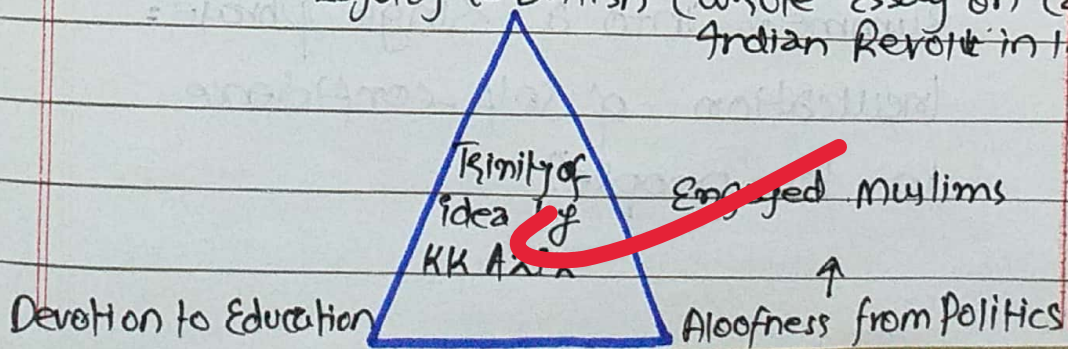 (British) (whole essay on
Indian Revolt in
Trinity of
idea by
KK Aziz
Engaged Muslims
Devotion to Education
Aloofness from Politics